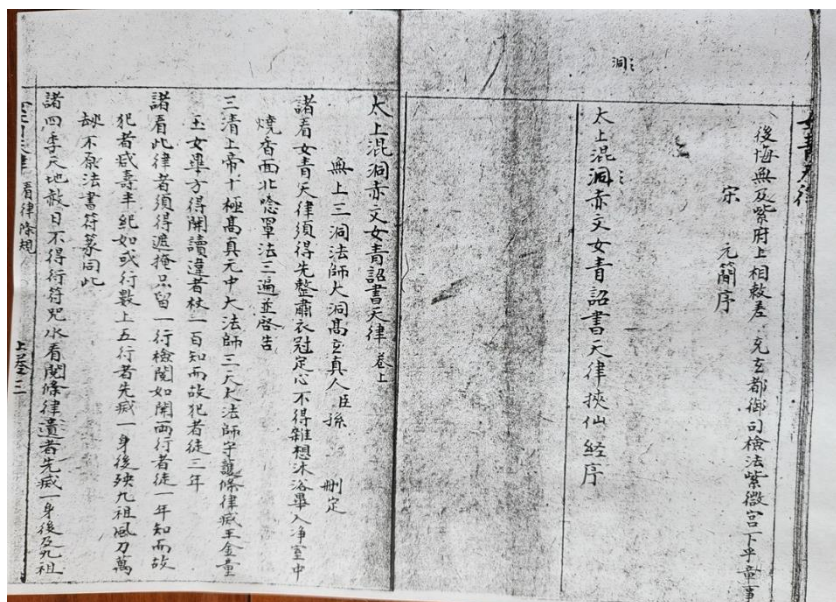 女青天律
後悔無及紫府上相敕差充玄都御司檢法紫微宮下乎章事
宋 元簡序
洞
太上混洞赤文女青詔書天律挾仙經序
太上混洞赤文女青詔書天律 卷上
無上三洞法師大洞高玄真人臣孫 刪定
諸看女青天律須得先整肅衣冠定心不得雜想沐浴畢入净室中
燒香西北唸罩法三遍並啓告
三清上帝十極高真元中大法師三天大法師守護條律威王金童
玉女畢方得開讀違者杖一百知而故犯者徒三年
諸看此律者須得遮掩只留一行檢閱如開两行者徒一年知而故
犯者減壽半紀如或行數上五行者先滅一身後殃九祖風刀萬
劫不原法書符篆同此
諸四季天地赦日不得行符咒水看閱條律違者先滅一身後及九祖
看律條規
上卷三